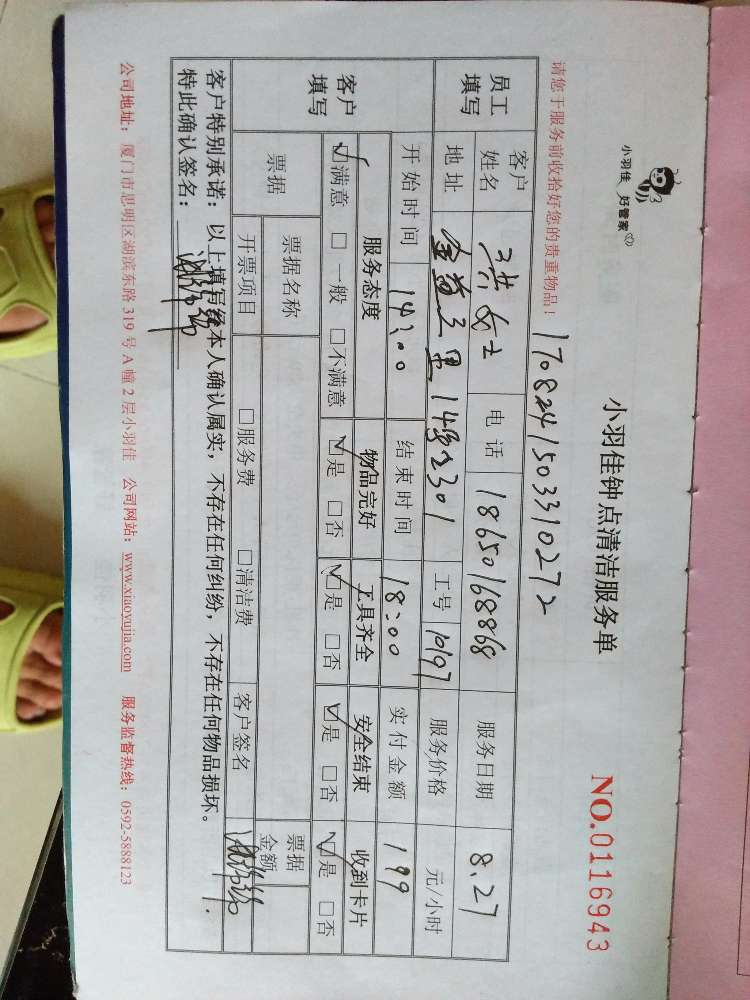 小羽佳 好管家
小羽佳钟点清洁服务单
NO.0116943
请您于服务前收拾好您的贵重物品!
17082415033310272
员工填写 客户姓名 洪女士 电话 18650168868 服务日期 8.27
地址 金益三里14号2301 工号 10197 服务价格 元/小时
客户填写 开始时间 14:00 结束时间 18:00 实付金额 199
服务态度 物品完好 工具齐全 安全结束 收到卡片
☑满意 □一般 □不满意 ☑是 □否 ☑是 □否 ☑是 □否 ☑是 □否
票据 票据名称 票据金额
开票项目 □服务费 □清洁费 客户签名
客户特别承诺:以上填写经本人确认属实,不存在任何纠纷,不存在任何物品损坏。
特此确认签名:
公司地址:厦门市思明区湖滨东路319号A幢2层小羽佳 公司网站:www.xiaoyujia.com 服务监督热线:0592-5888123